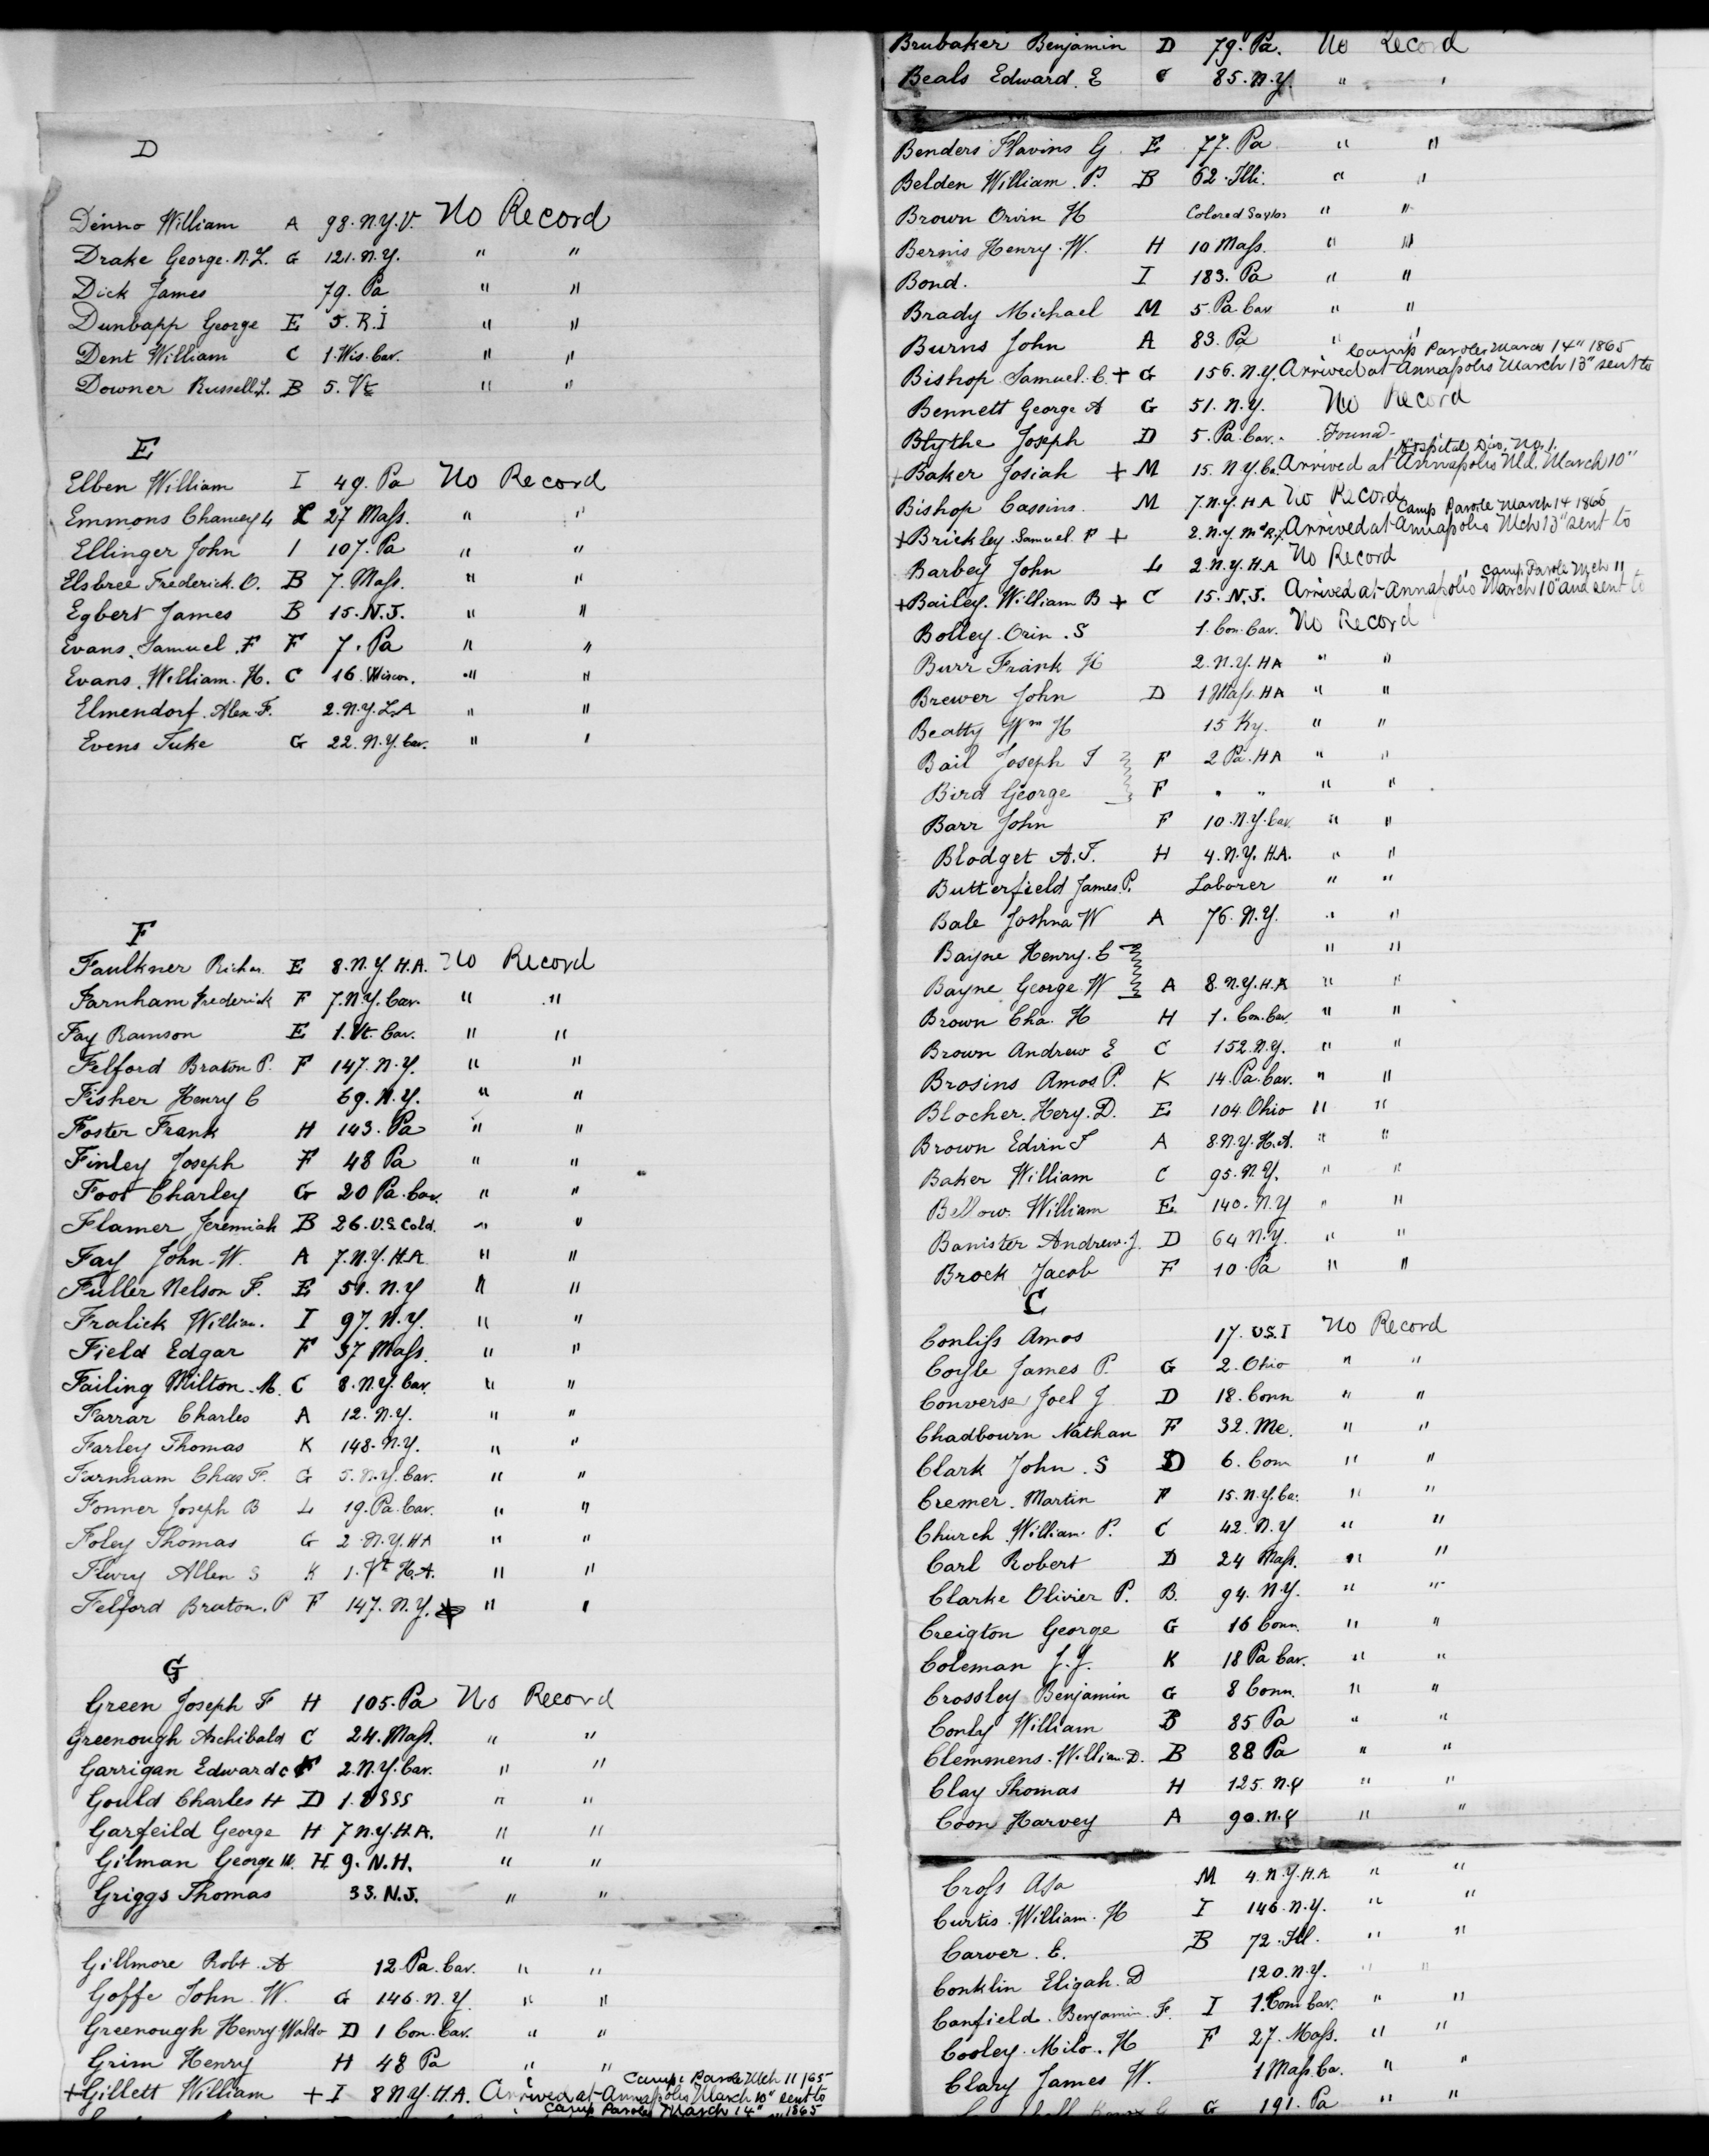 D
Dinno William A 98. N.Y.V. No Record
Drake George. N.L. G 121. N.Y. " "
Dick James 79. Pa " "
Dunbapp George E 5. R.I " "
Dent William C 1. Wis. Cav. " "
Downer Russell L. B 5. Vt " "
E
Elben William I 49. Pa No Record
Emmons Chancey L 27 Mass. " "
Ellinger John I 107. Pa " "
Elsbree Frederick. O. B 7. Mass. " "
Egbert James B 15. N.J. " "
Evans. Samuel. F F 7. Pa " "
Evans. William. H. C 16 Wiscon. " "
Elmendorf. Alex. F. 2. N.Y. L.A " "
Evens Tuke G 22. N.Y. Cav. " "
F
Faulkner Richar. E 8. N.Y. H.A. No Record
Farnham Frederick F 7. N.Y. Cav. " "
Fay Ramson E 1. Vt. Cav. " "
Felford Braton P. F 147. N.Y. " "
Fisher Henry C 69. N.Y. " "
Foster Frank H 143. Pa " "
Finley Joseph F 48 Pa " "
Foot Charley G 20 Pa. Cav. " "
Flamer Jeremiah B 26. U.S. Cold. " "
Fay John. W. A 7. N.Y. H.A " "
Fuller Nelson F. E 51. N.Y " "
Fralick William. I 97. N.Y. " "
Field Edgar F 37 Mass. " "
Failing Milton. M. C 8. N.Y. Cav. " "
Farrar Charles A 12. N.Y. " "
Farley Thomas K 148. N.Y. " "
Farnham Chas F. G 5. N.Y. Cav. " "
Fonner Joseph B L 19. Pa. Cav. " "
Foley Thomas G 2 N.Y. HA " "
Flury Allen S K 1. Vt H.A. " "
Felford Braton. P F 147. N.Y. " "
G
Green Joseph F H 105. Pa No Record
Greenough Archibald C 24. Mass. " "
Garrigan Edward C F 2. N.Y. Cav. " "
Gould Charles H D 1. USSS " "
Garfeild George H 7 N.Y. H.A. " "
Gilman George W. H 9. N.H. " "
Griggs Thomas 33. N.J. " "
Gillmore Robt. A 12. Pa. Cav. " "
Goffe John. W. G 146. N.Y. " "
Greenough Henry Waldo D 1 Con. Cav. " "
Grim Henry H 48 Pa " "
Camp Parole Mch 11 /65
+Gillett William + I 8 N.Y. H.A. Arrived at Annapolis March 10" sent to
Camp Parole March 14" 1865
Brubaker Benjamin D 79. Pa. No Record
Beals Edward. E C 85. N.Y. " "
Benders Flavins G E 77. Pa " "
Belden William. P. B 62. Illi. " "
Brown Orvin H Colored Saylor " "
Bernis Henry. W. H 10 Mass. " "
Bond. I 183. Pa " "
Brady Michael M 5. Pa. Cav " "
Burns John A 83. Pa " "
Camp Parole March 14" 1865
Bishop Samuel. C. + G 156. N.Y. Arrived at Annapolis March 13" sent to
Bennett George A G 51. N.Y. No Record
Blythe Joseph D 5. Pa. Cav. Found
Hospital Div. No. 1.
+Baker Josiah + M 15. N.Y. Ca. Arrived at Annapolis Md. March 10"
Bishop Cassins. M 7. N.Y. H A No Record
Camp Parole March 14 1865
+Brickley. Samuel. F + 2. N.Y. Md R. Arrived at Annapolis Mch 13" sent to
Barbey John L 2. N.Y. H.A No Record
Camp Parole Mch 11
+Bailey. William B + C 15. N.J. Arrived at Annapolis March 10" and sent to
Bolley. Orin. S 1. Con. Cav. No Record
Burr Frank H 2. N.Y. HA " "
Brewer John D 1 Mass. HA " "
Beatty Wm H 15 Ky. " "
Bail Joseph T F 2 Pa. HA " "
Bird George F " " " "
Barr John F 10. N.Y. Cav. " "
Blodget A. T. H 4. N.Y. H.A. " "
Butterfield James. P. Laborer " "
Bale Joshua W A 76. N.Y. " "
Bayne Henry. C " "
Bayne George. W A 8. N.Y. H.A " "
Brown Cha. H H 1. Con. Cav. " "
Brown Andrew E C 152. N.Y. " "
Brosins Amos. P. K 14. Pa. Cav. " "
Blocher. Hery. D. E 104. Ohio " "
Brown Edvin T A 8. N.Y. H.A. " "
Baker William C 95. N.Y. " "
Bellow. William E 140. N.Y " "
Banister Andrew. J. D 64 N.Y. " "
Brock Jacob F 10. Pa " "
C
Conliss Amos 17. U.S. I No Record
Coyle James P. G 2. Ohio " "
Converse Joel J D 18. Conn " "
Chadbourn Nathan F 32. Me. " "
Clark John. S D 6. Con " "
Cremer. Martin F 15. N.Y. Ca. " "
Church. William. P. C 42. N.Y " "
Carl Robert D 24 Mass. " "
Clarke Olivier P. B. 94. N.Y. " "
Creigton George G 16 Conn. " "
Coleman J. J. K 18 Pa Cav. " "
Crossley Benjamin G 8 Conn. " "
Conly William B 85 Pa " "
Clemmens. William. D. B 88 Pa " "
Clay Thomas H 125. N.Y " "
Coon Harvey A 90. N.Y " "
Cross Asa M 4. N.Y. H.A " "
Curtis. William. H I 146. N.Y. " "
Carver. E. B 72. Ill. " "
Conklin Eligah. D 120. N.Y. " "
Canfield. Benjamin. F. I 1. Con Cav. " "
Cooley. Milo. H F 27. Mass. " "
Clary James W. 1 Mass. Ca. " "
G 191. Pa " "